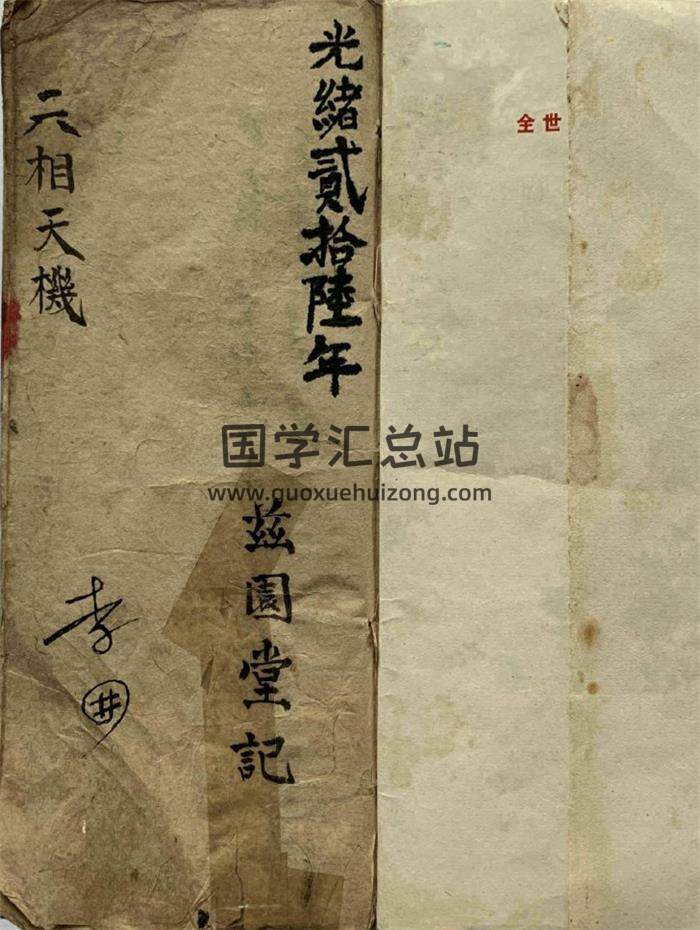 全世
光緒貳拾陸年
茲園堂記
六相天機
李
井
国学汇总站
www.guoxuehuizong.com